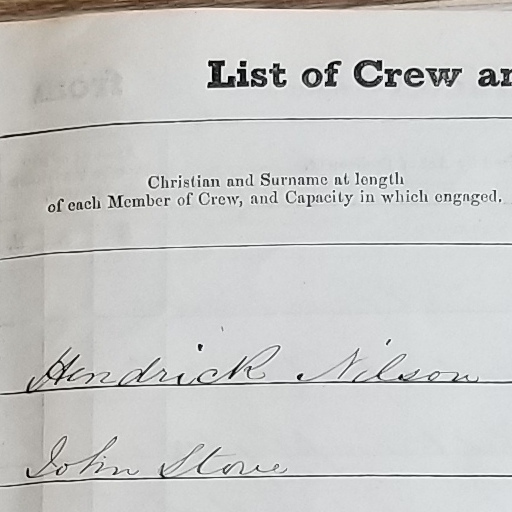 List of Crew an
Christian and Surname at length
of each Member of Crew, and Capacity in which engaged.
Hendrick Nilson
John Stove